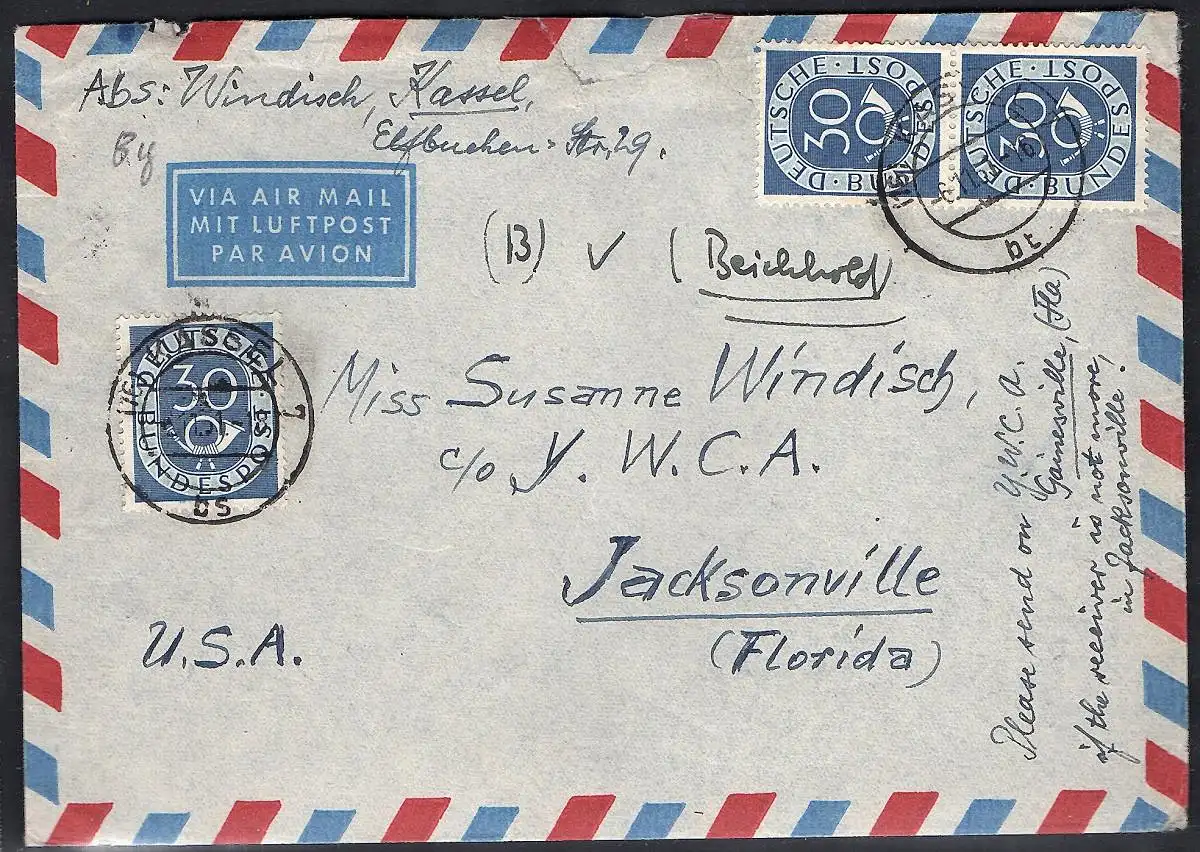 Abs: Windisch, Kassel,
Elfbuchen-Str. 29.
By
VIA AIR MAIL
MIT LUFTPOST
PAR AVION
DEUTSCHE BUNDESPOST
30
DEUTSCHE BUNDESPOST
30
(B) V (Beichhold)
DEUTSCHE BUNDESPOST
30
KASSEL 7
bs
Miss Susanne Windisch,
c/o Y. W. C. A.
Jacksonville
(Florida)
U.S.A.
Please send on Y.W.C.A.
Gainesville, (Fla)
if the receiver is not more,
in Jacksonville!